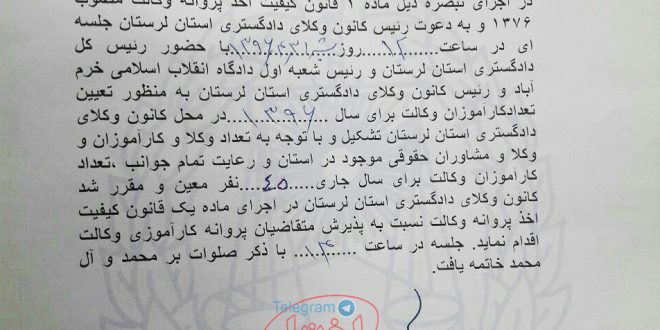 در اجرای تبصره ذیل ماده ۱ قانون کیفیت اخذ پروانه وکالت مصوب
۱۳۷۶ و به دعوت رئیس کانون وکلای دادگستری استان لرستان جلسه
ای در ساعت.....۱۲.....روز....۱۳۹۶،۴،۳۱....با حضور رئیس کل
دادگستری استان لرستان و رئیس شعبه اول دادگاه انقلاب اسلامی خرم
آباد و رئیس کانون وکلای دادگستری استان لرستان به منظور تعیین
تعدادکارآموزان وکالت برای سال ....۱۳۹۶....در محل کانون وکلای
دادگستری استان لرستان تشکیل و با توجه به تعداد وکلا و کارآموزان و
وکلا و مشاوران حقوقی موجود در استان و رعایت تمام جوانب ،تعداد
کارآموزان وکالت برای سال جاری.....۴۵....نفر معین و مقرر شد
کانون وکلای دادگستری استان لرستان در اجرای ماده یک قانون کیفیت
اخذ پروانه وکالت نسبت به پذیرش متقاضیان پروانه کارآموزی وکالت
اقدام نماید. جلسه در ساعت ....۱۴.... با ذکر صلوات بر محمد و آل
محمد خاتمه یافت.
Telegram